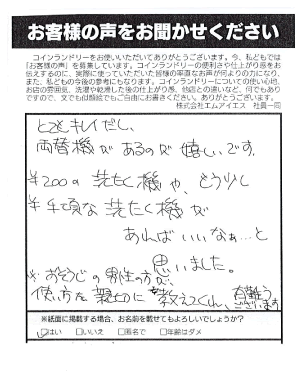 お客様の声をお聞かせください
コインランドリーをお使いいただいてありがとうございます。今、私どもでは
「お客様の声」を募集しています。コインランドリーの便利さや仕上がり感をお
伝えするのに、実際に使っていただいた皆様の率直なお声が何よりの力になり、
また、私どもの今後の参考にもなります。コインランドリーについての使い心地、
お店の雰囲気、洗濯や乾燥した後の仕上がり感、他店との違いなど、何でもあり
ですので、文でも似顔絵でもご自由にお書きください。ありがとうございます。
株式会社エムアイエス 社員一同
とてもキレイだし、
両替機があるのが嬉しいです。
¥200の洗たく機や、もう少し
¥手頃な洗たく機が
あればいいなぁ…と
思いました。
※おそうじの男性の方が、
使い方を親切に教えてくれ、有難う
ございます
※紙面に掲載する場合、お名前を載せてもよろしいでしょうか?
☑はい □いいえ □匿名で □年齢はダメ